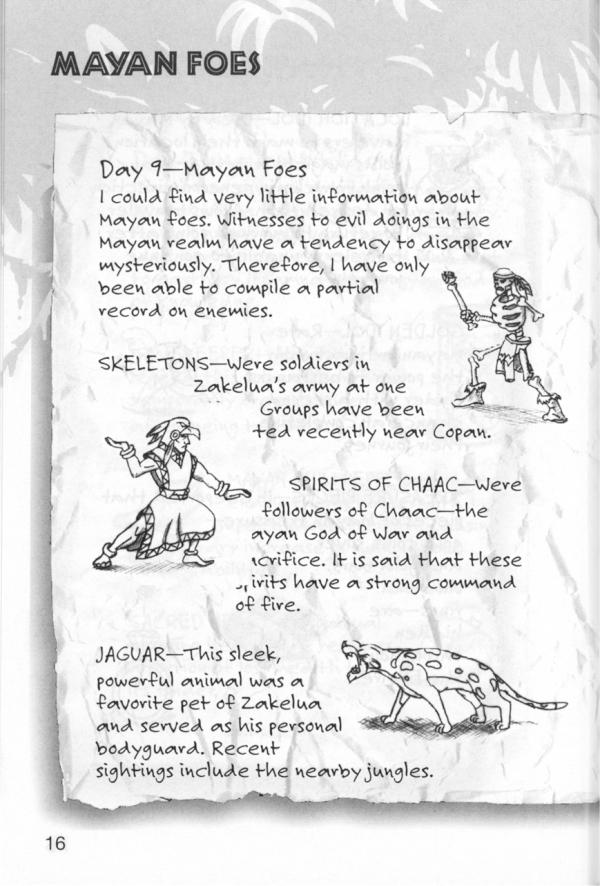 MAYAN FOES
Day 9—Mayan Foes
I could find very little information about
Mayan foes. Witnesses to evil doings in the
Mayan realm have a tendency to disappear
mysteriously. Therefore, I have only
been able to compile a partial
record on enemies.
SKELETONS—Were soldiers in
Zakelua's army at one
Groups have been
ted recently near Copan.
SPIRITS OF CHAAC—Were
followers of Chaac—the
ayan God of War and
crifice. It is said that these
irits have a strong command
of fire.
JAGUAR—This sleek,
powerful animal was a
favorite pet of Zakelua
and served as his personal
bodyguard. Recent
sightings include the nearby jungles.
16